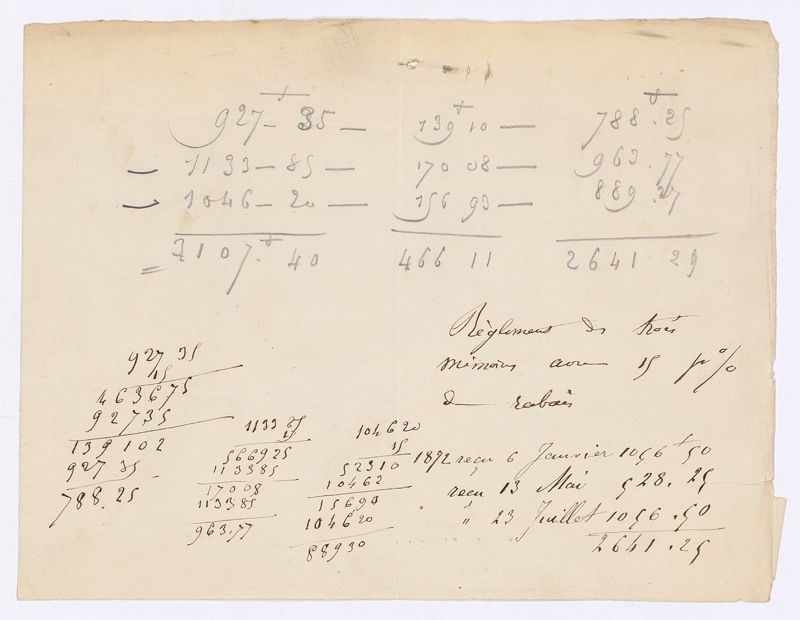 927 — 35 —
1133 — 85 —
1046 — 20 —
= 3107. 40
139 10 —
170 08 —
156 93 —
466 11
788. 25
963. 77
889. 27
2641. 29
Règlement des trois
mémoires avec 15 p%
de rabais
927 35
15
463675
92735
139102
927 35
788.25
1133 85
15
566925
113385
17008
113385
963.77
104620
15
52310
10462
15690
104620
88930
1872 reçu 6 Janvier 1056 50
reçu 13 Mai 528. 25
" 23 Juillet 1056. 50
2641. 25